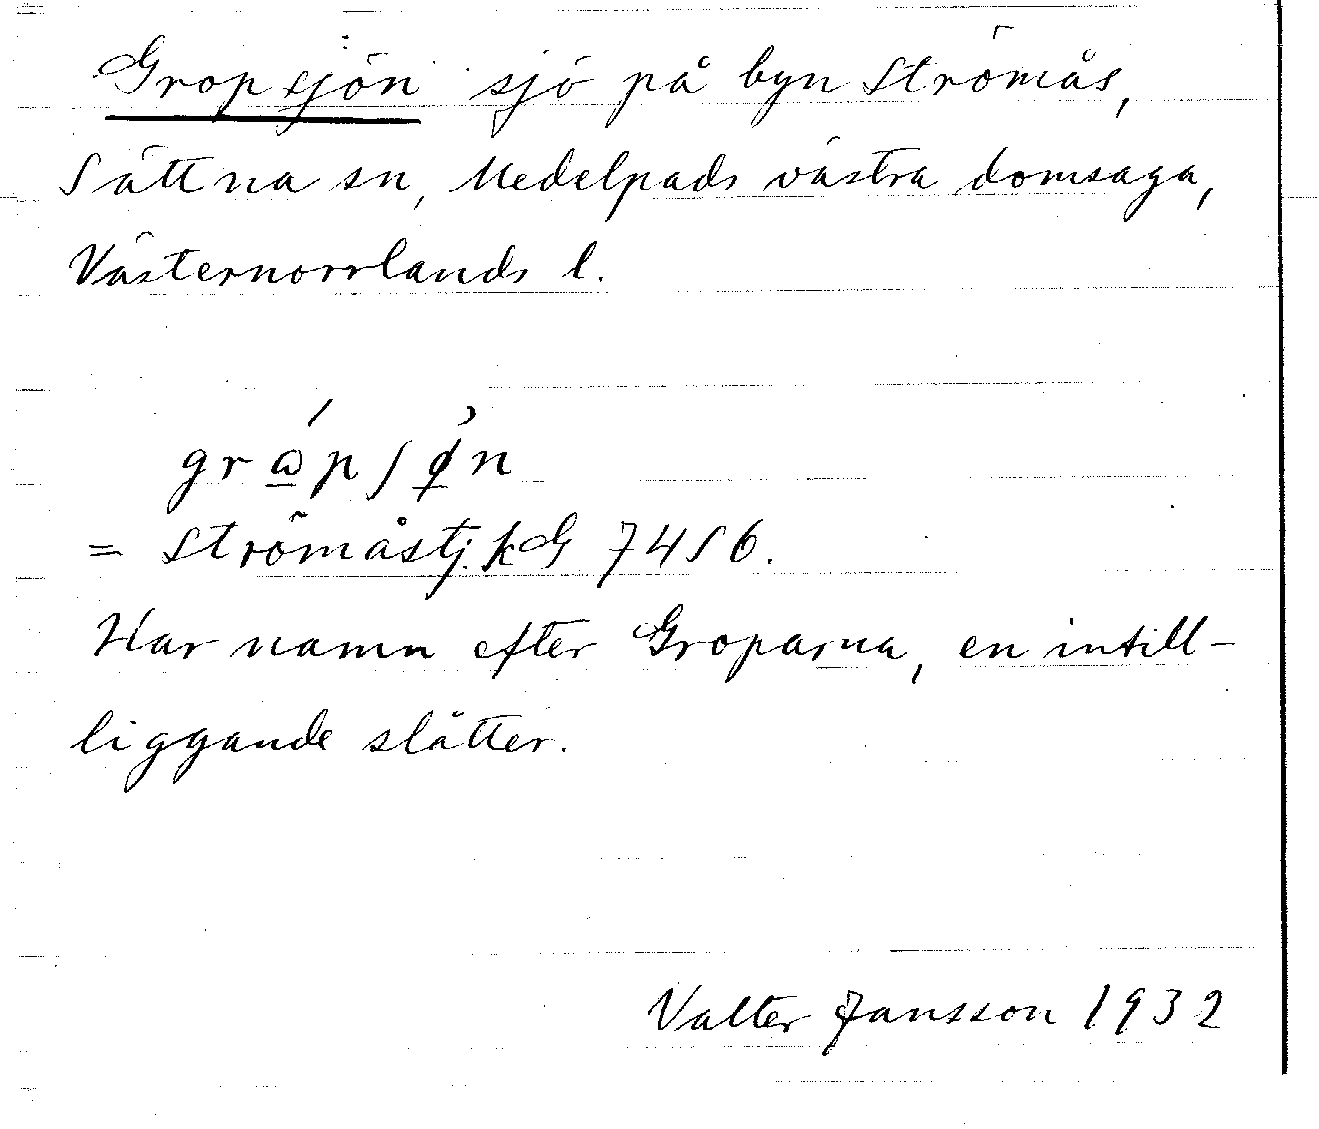 Gropsjön sjö på byn Strömås,
Sättna sn, Medelpads västra domsaga,
Västernorrlands l.
= Strömåstj. kG 7456.
Har namn efter Groparna, en intill-
liggande slåtter.
Valter Jansson 1932